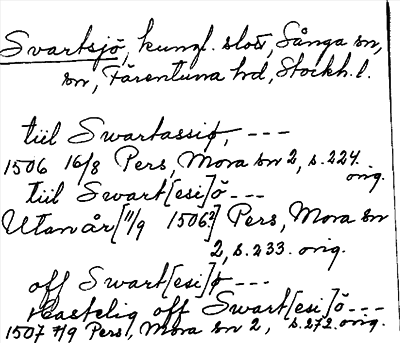 Svartsjö, kungl. slott, Sånga sn,
sn, Färentuna hd, Stockh. l.
till Swartassiø, ---
1506 16/8 Pers, Mora sn 2, s. 224.
orig.
till Swart[esi]ö ---
Utan år [11/9 1506?] Pers, Mora sn
2, s. 233. orig.
off Swart[esi]ø ---
off Swart[esi]ö ---
1507 7/9 Pers, Mora sn 2, s. 272. orig.